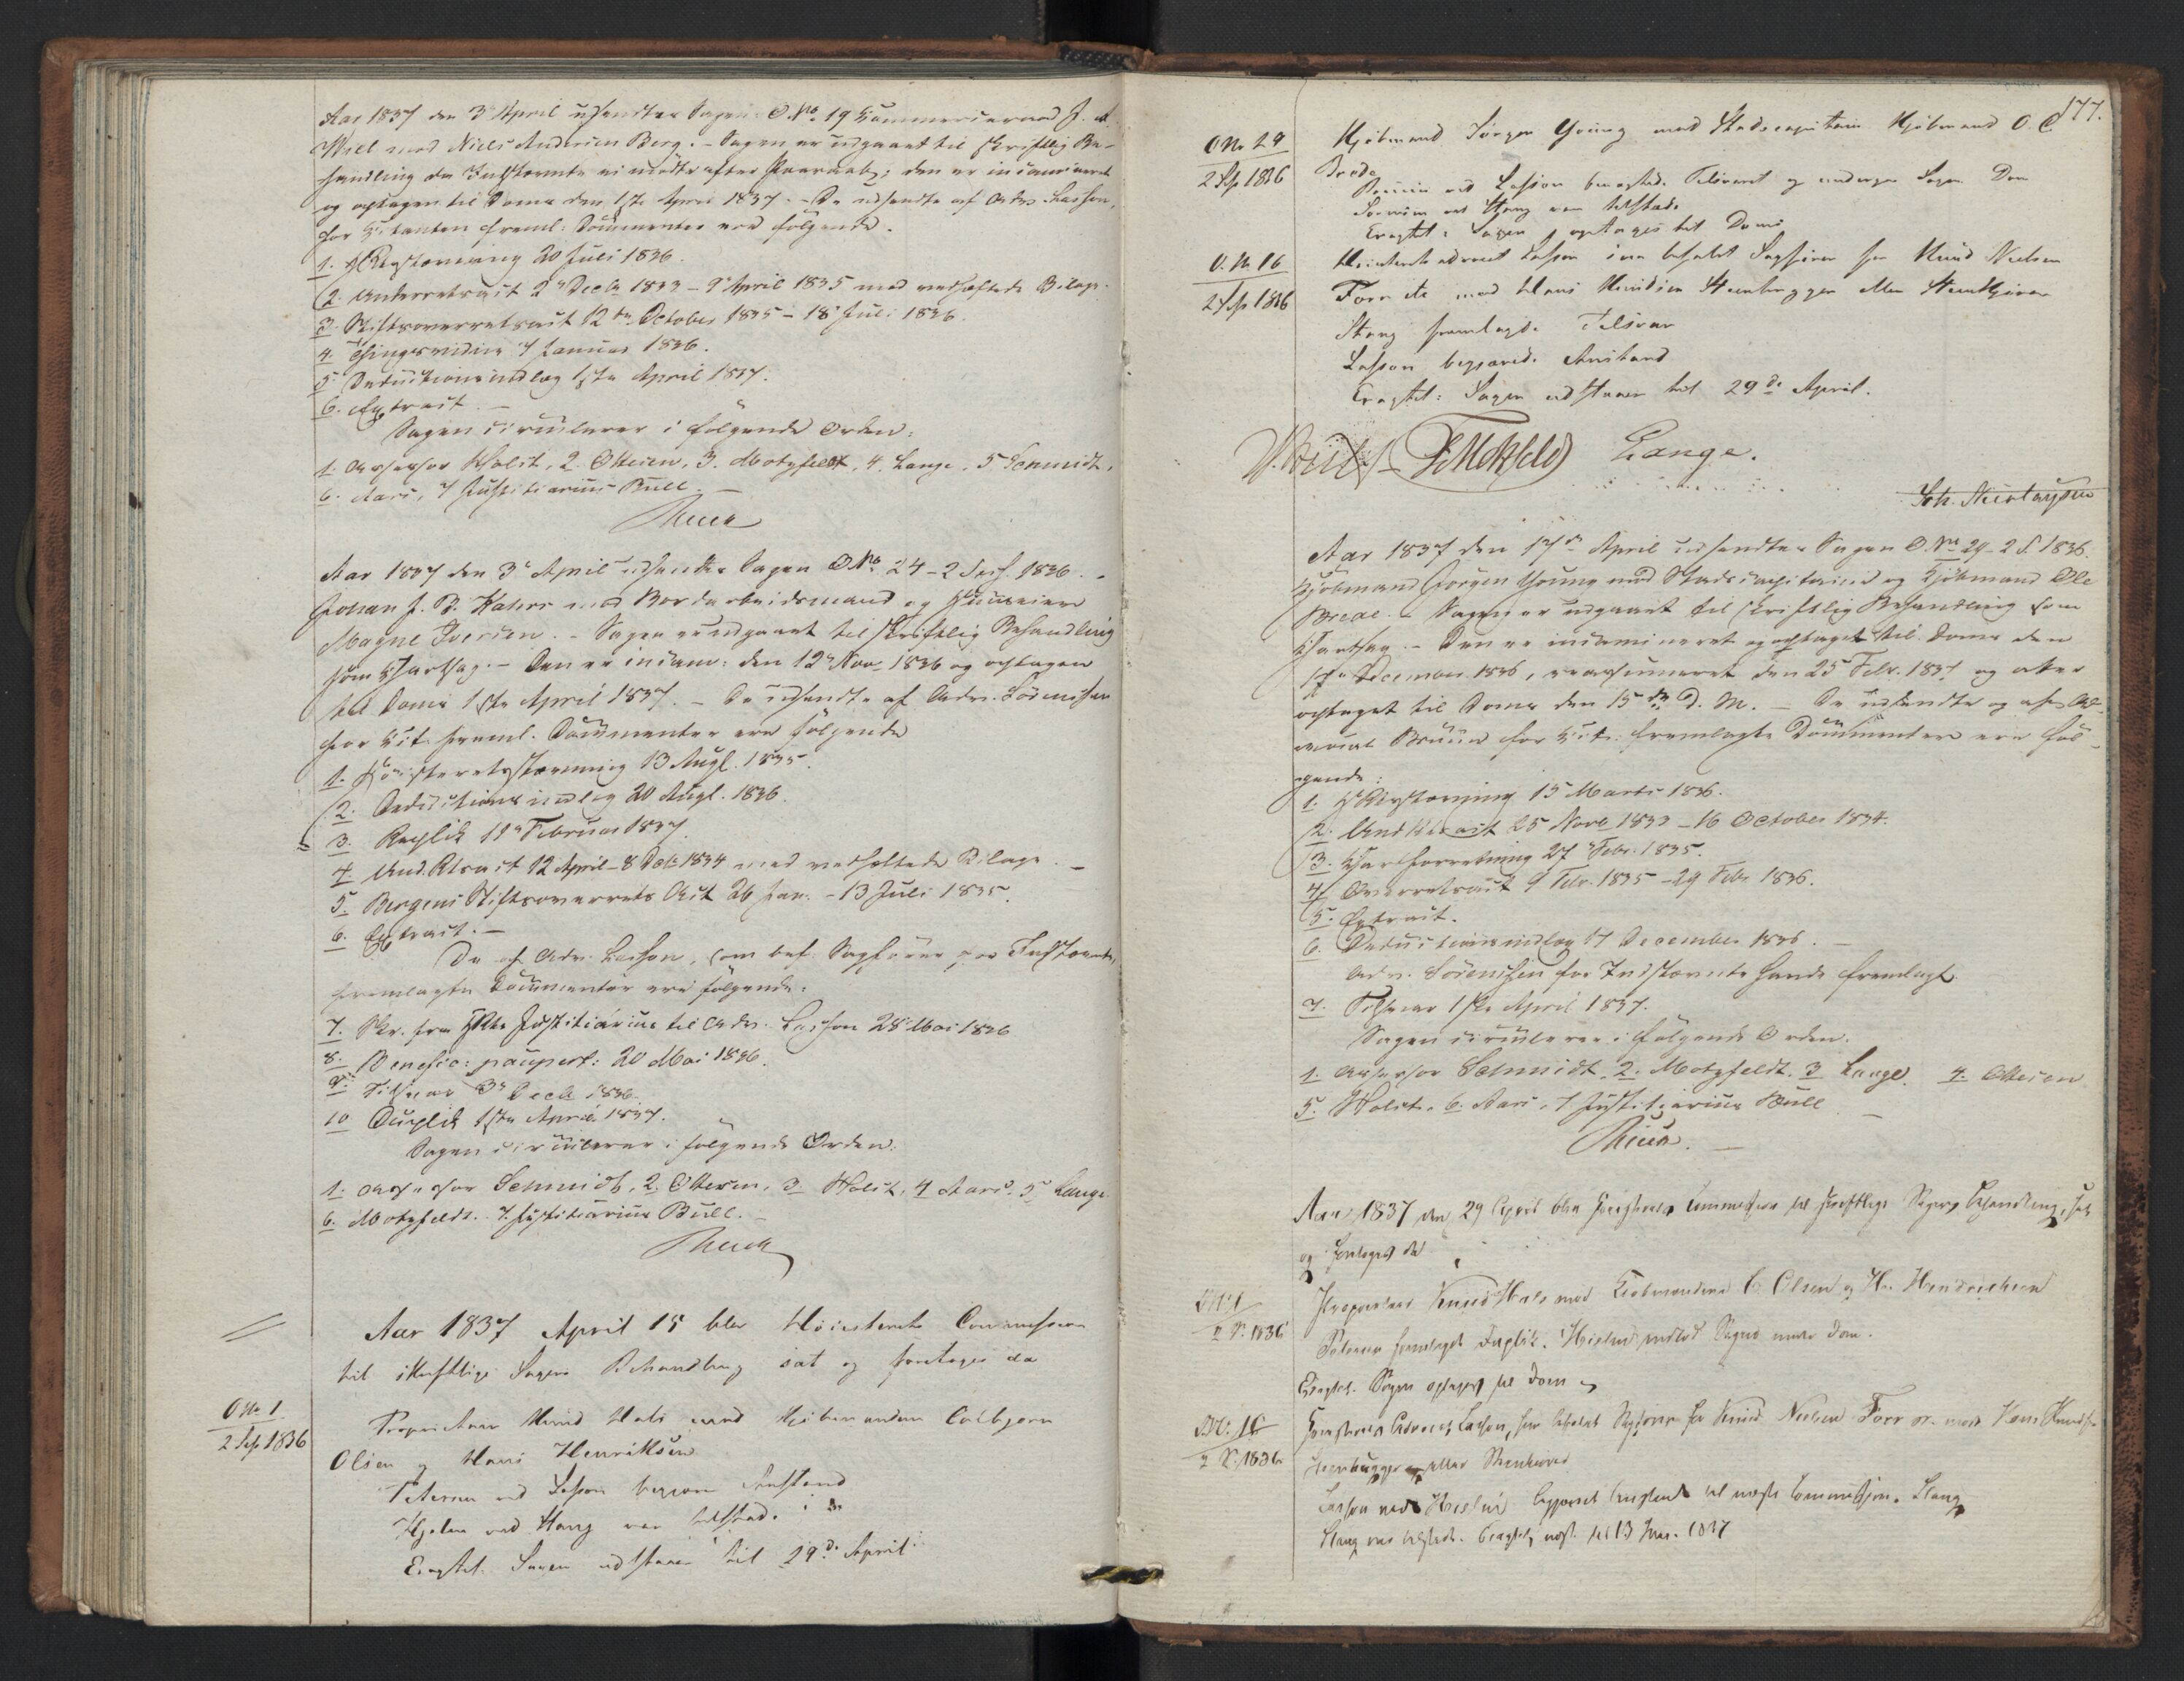 Aar 1837 den 3e April udsendtes Sagen O. No 19 Kammerierraad J. A.
Wiell mod Niels Andersen Berg. - Sagen er udgaaet til skriftlig Be-
handling da Indstevnte ei mødte efter Paaraab; den er incamineret
og optagen til Doms den 1ste April 1837. - De udsendte af Advo. Lasson,
for Citanten freml: Documenter ere følgende.
1. HRetsstævning 20 Juli 1836.
2. Underretsact 2n Decbr 1833 - 9 April 1835 med vedhæftede Bilage.
3. Stiftsoverretsact 12te October 1835 - 18 Juli 1836.
4. Thingsvidne 7 Januar 1836.
5. Deductionsindlæg 1ste April 1837.
6. Extract. -
Sagen circulerer i følgende Orden:
1. Assessor Holst, 2. Ottesen, 3. Motzfeldt, 4. Lange, 5 Schmidt,
6. Aars, 7 Justitiarius Bull. -
Aar 1837 den 3e April udsendtes Sagen O No. 24 - 2 Sess. 1836. -
Johan J. B. Kahrs mod Borderbeidsmand og Huuseier
Magne Iversen. - Sagen er udgaaet til skriftlig Behandling
som Extractsag. - Den er incam: den 12 Nov 1836 og optagen
til Doms 1ste April 1837. - De udsendte af Advo. Sørensen
for Cit. freml. Documenter ere følgende
1. Høiesteretsstævning 13 Augt. 1835.
2. Deductionsindlæg 20 Augt. 1836.
3. Replik 11 Februar 1837.
4. Und. Rtsact 12 April - 8 Octb 1834 med vedhæftede Bilage. -
5. Bergens Stiftsoverrets Act 26 Jan. - 13 Juli 1835.
6. Extract. -
De af Advo. Lasson, som bef. Sagfører for Indstevnte,
fremlagte Documenter ere følgende:
7. Skr. fra HRets Justitiarius til Advo. Lasson 28 Mai 1836
8. Benefic: paupert: 20 Mai 1836.
9. Tilsvar 3 Decbr 1836.
10 Duplik 1ste April 1837.
Sagen circulerer i følgende Orden:
1. Assessor Schmidt, 2. Ottesen, 3. Holst, 4 Aars. 5 Lange
6. Motzfeldt. 7. Justitiarius Bull. -
Aar 1837 April 15 blev Høiesterets Commission
til skriftlige Sagers Behandling sat og foretoges da
O No 1.
2 Ses 1836
Proprietair Knud Hals mod Kjøbmændene Colbjørn
Olsen og Hans Henriksen
Petersen ved Lasson begjerte Anstand
Hjelm ved Stang var tilstede
Eragtet. Sagen udstaaer til 29de April
177.
O No 29
2 Ses 1836
Kjøbmand Jørgen Young mod Stadscapitain Kjøbmand O. C.
Brede
ved Lasson Tilsvaret og Sagen Dom
Sørensen ved Stang var tilstede
Eragtet: Sagen optages til Doms
O. No 16
2 Ses 1836
Høiesteretsadvocat Lasson som befalet Sagfører for Knud Nielsen
Forr etc mod Hans Knudsen Steenbrygger eller Steenkjører
Stang fremlagde Tilsvar
Lasson begjærede Anstand
Eragtet: Sagen udstaaer til 29de April.
G. Bull FMotzfeldt Lange.
Aar 1837 den 17de April udsendtes Sagen O. No 29 - 2 S. 1836.
Kjøbmand Jørgen Young mod Stadscapitaine og Kjøbmand Ole
Brede. - Sagen er udgaaet til skriftlig Behandling som
Extractsag. - Den er incamineret og optaget til Doms den
17 December 1836, reassumeret den 25 Febr. 1837 og atter
optaget til Doms den 15de d. M. - De udsendte og af Ad-
vocat Bruun for Cit: fremlagte Documenter ere føl-
gende:
1. HRetsstævning 15 Marts 1836.
2. UndRtsact 25 Novb 1833 - 16 October 1834.
3. Extractforretning 27 Febr. 1835.
4. Overretsact 9 Febr. 1835 - 29 Febr 1836.
5. Extract.
6. Deductionsindlæg 17 December 1836. -
Advo. Sørensen for Indstævnte havde fremlagt
7. Tilsvar 1ste April 1837.
Sagen circulerer i følgende Orden.
1. Assessor Schmidt. 2. Motzfeldt. 3 Lange. 4. Ottesen
5. Holst. 6. Aars. 7 Justitiarius Bull -
Aar 1837 den 29 April blev Høiesterets Commission til skriftlige Sagers Behandling, sat
og foretoges da
O No 1
2 S. 1836
Proprietair Knud Hals mod Kiøbmændene C. Olsen og H. Hendrichsen
Petersen fremlagde Duplik. Sagen under Dom.
Eragtet. Sagen optages til Dom
O No. 16
2 S. 1836
Høiesterets Advocat Lasson, som befalet Sagfører for Knud Nielsen Forr etc. mod Hans Knudsen
Steenbrygger eller Steenkiører
Lasson ved begjærede Anstand til næste Commission. Stang
Stang var tilstede. Eragtet, udst. til 13 Juni 1837